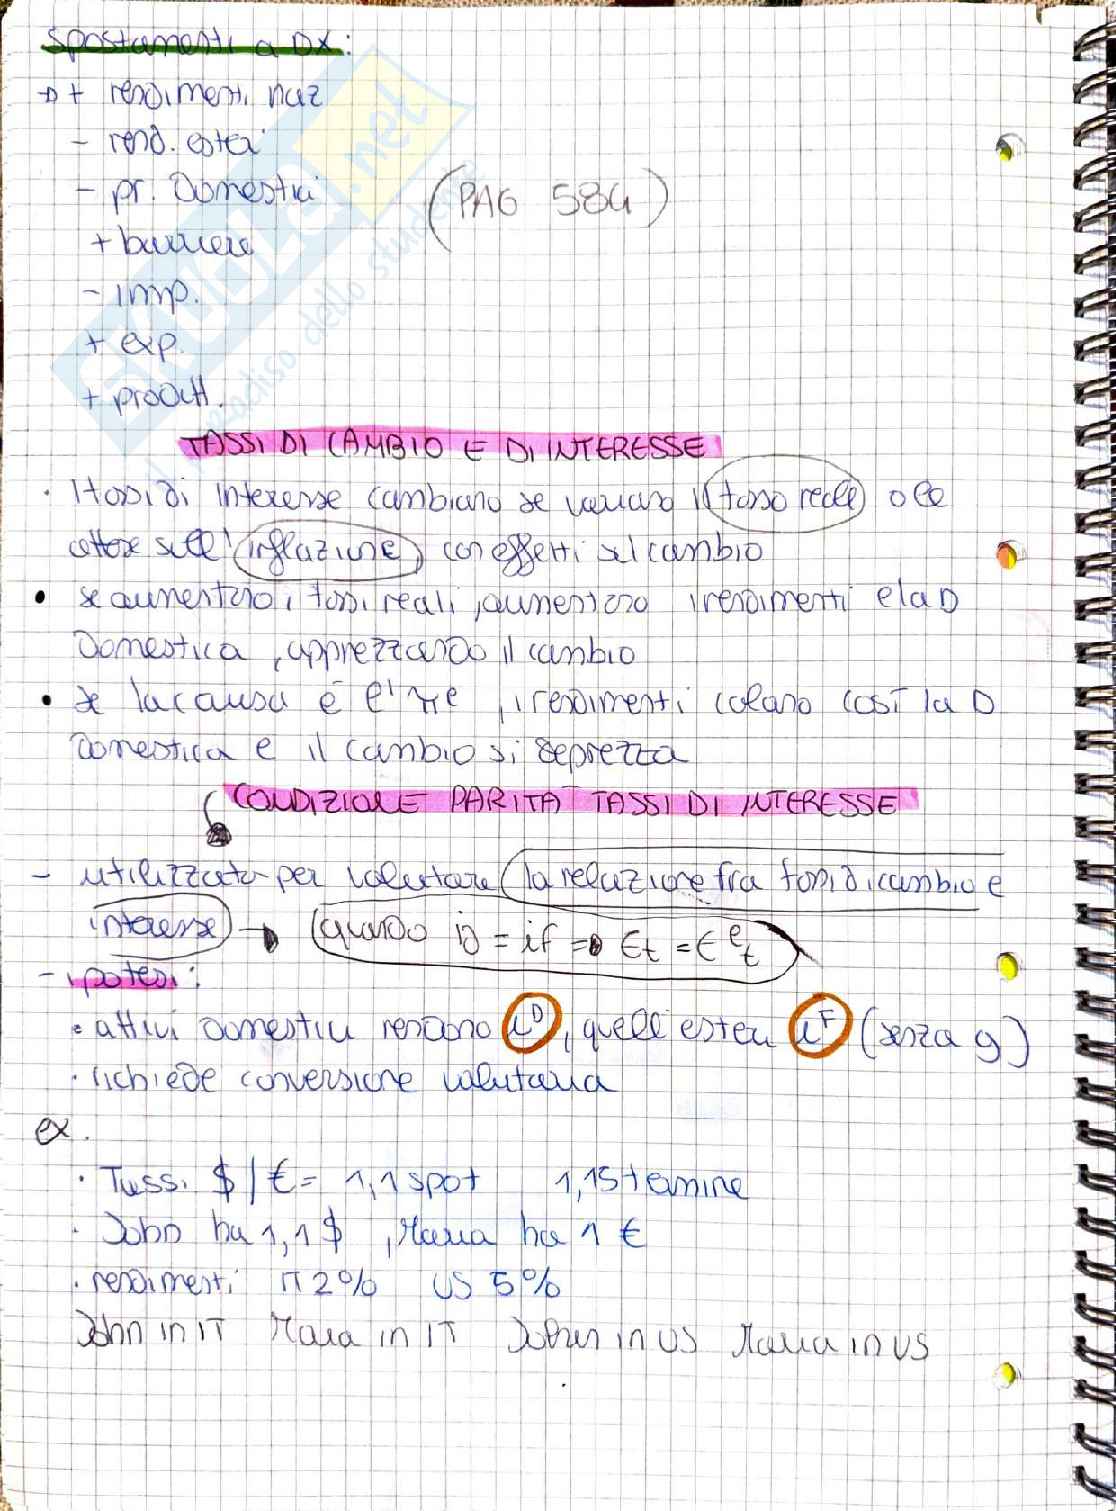 Spostamenti a DX:
→ + rendimenti naz
- rend. esteri
- pr. Domestici
(PAG 584)
+ barriere
- imp.
+ exp.
+ produtt.
TASSI DI CAMBIO E DI INTERESSE
• I tassi di interesse cambiano se variano il tasso reale o le
attese sull'inflazione con effetti sul cambio
• se aumentano i tassi reali, aumentano i rendimenti e la D
Domestica, apprezzando il cambio
• se la causa è l'πe, i rendimenti calano così la D
Domestica e il cambio si deprezza
CONDIZIONE PARITA' TASSI DI INTERESSE
- utilizzata per valutare la relazione fra tassi di cambio e
interesse → quando iD = iF => Et = E^e_t
- ipotesi:
• attivi domestici rendono i^D, quelli esteri i^F (senza g)
• richiede conversione valutaria
ex.
• Tassi $/€ = 1,1 spot 1,15 termine
• John ha 1,1 $, Maria ha 1 €
• rendimenti IT 2% US 5%
John in IT Maria in IT John in US Maria in US
skuola.net
il paradiso dello studente